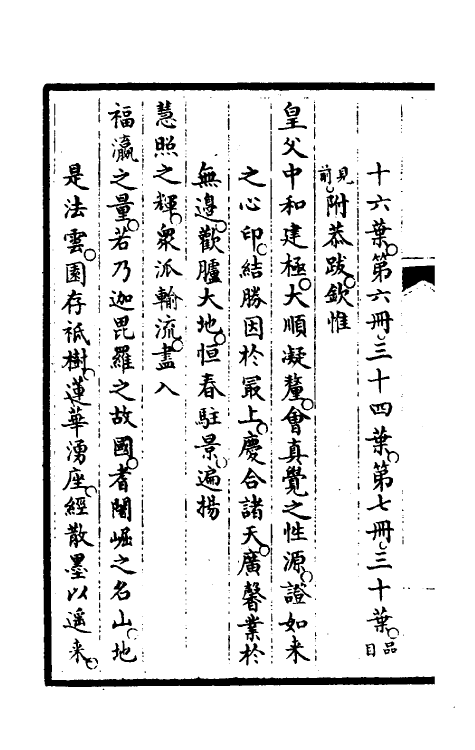 十六葉。第六冊。三十四葉。第七冊。三十葉。品目
見前附恭跋。欽惟
皇父中和建極。大順凝釐。會真覺之性源。證如來
之心印。結勝因於最上。慶合諸天。廣馨業於
無邊。歡臚大地。恒春駐景。遍揚
慧照之輝。衆派輸流。盡入
福瀛之量。若乃迦毘羅之故國。耆闍崛之名山。地
是法雲。園存祇樹。蓮華湧座。經散墨以遥来。